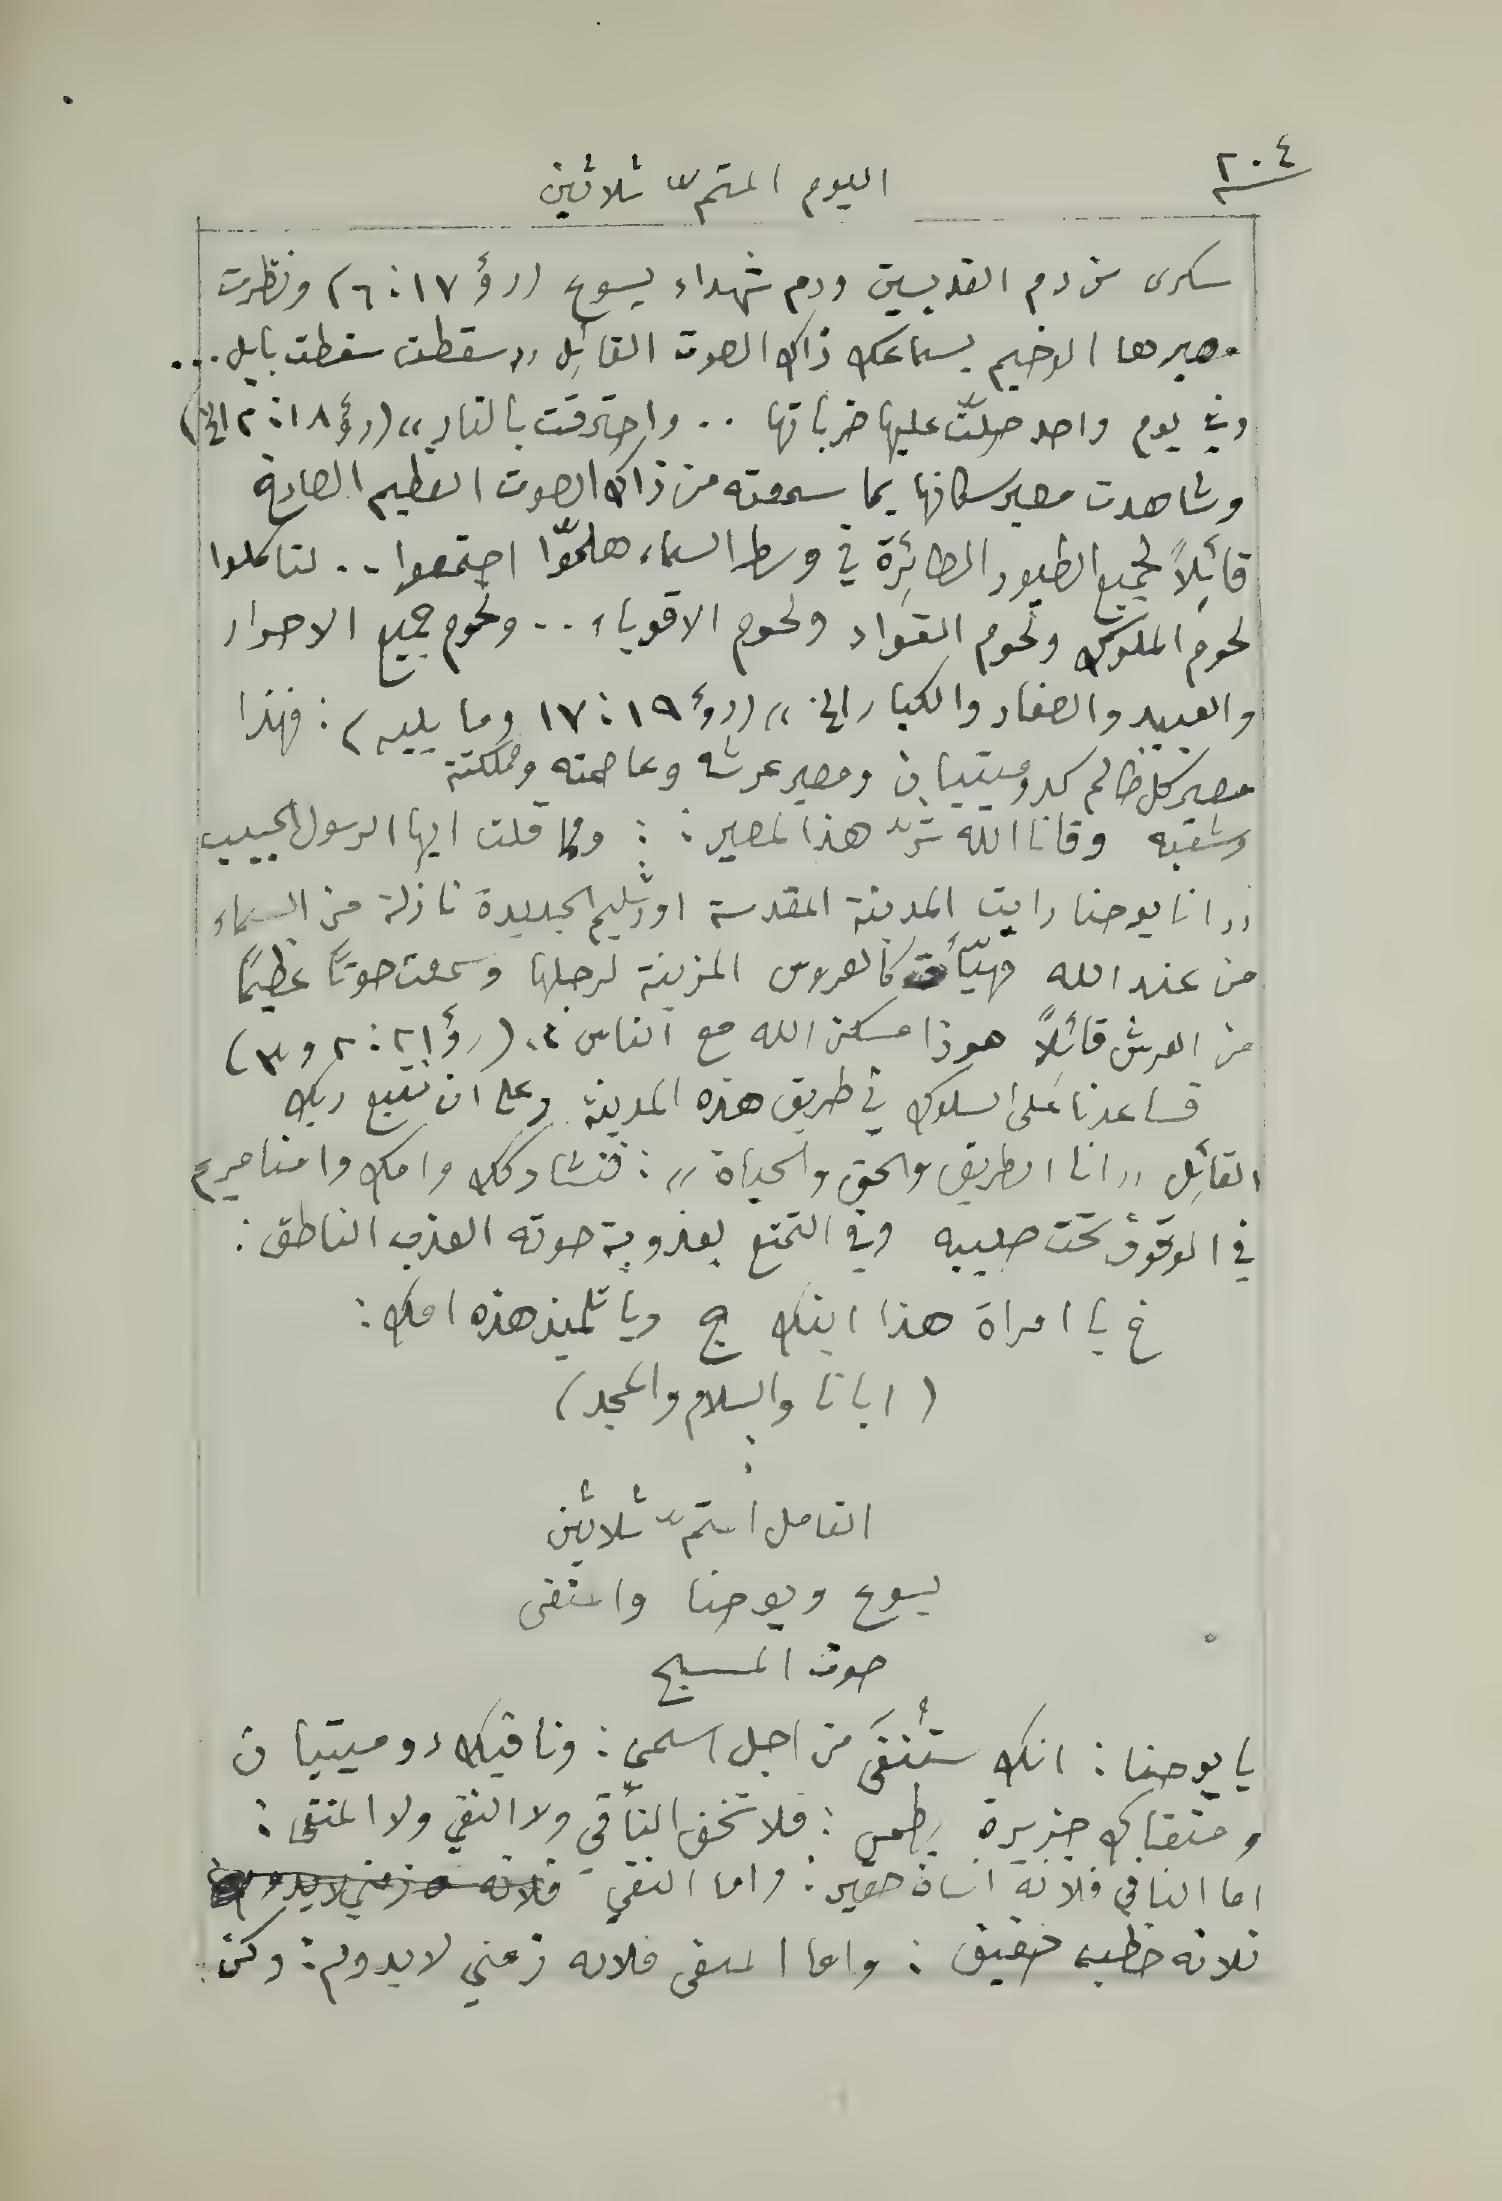 ٢٠٤
اليوم المتمّ ثلاثين
سكرى من دم القديسين ودم شهداء يسوع (رؤ ١٧: ٦) ونظرت
مصيرها الوخيم بسماعك ذاك الصوت القائل ,,سقطت سقطت بابل...
وفي يوم واحد حلّت عليها ضرباتها .. واحترقت بالنار,, (رؤ ١٨: ٢ الخ)
وشاهدت مصير سكانها بما سمعته من ذاك الصوت العظيم الصارخ
قائلاً لجميع الطيور الطائرة في وسط السماء هلمّوا اجتمعوا .. لتاكلوا
لحوم الملوك ولحوم القواد ولحوم الاقوياء .. ولحوم جميع الاحرار
والعبيد والصغار والكبار الخ ,, (رؤ ١٩: ١٧ وما يليه): فهذا
مصير كل ظالم كدوميتيان ومصير عرشه وعاصمته ومملكته
وشعبه وقانا الله شرّ هذا المصير: : ومما قلت ايها الرسول الحبيب
,,انا يوحنا رايت المدينة المقدسة اورشليم الجديدة نازلة من السماء
من عند الله مهيّأة كالعروس المزينة لرجلها وسمعت صوتًا عظيمًا
من العرش قائلاً هوذا مسكن الله مع الناس ,, (رؤ ٢١: ٢ و٣)
فساعدنا على السلوك في طريق هذه المدينة وعلى ان نتبع ربك
القائل ,,انا الطريق والحق والحياة,, : فنشاركك وامك وامنا مريم
في الوقوف تحت صليبه وفي التمتع بعذوبة صوته العذب الناطق:
خ يا امراة هذا ابنك ج ويا تلميذ هذه امك:
(ابانا والسلام والمجد)
التامل المتمّ ثلاثين
يسوع ويوحنا والمنفى
صوت المسيح
يا يوحنا: انك ستُنفَى من اجل اسمي: ونافيك دوميتيان
ومنفاك جزيرة بطمس: فلا تخف النافي ولا النفي ولا المنفى:
اما النافي فلانه انسان حقير: واما النفي فلانه زمني لا يدوم
فلانه خطب خفيف: واما المنفى فلانه زمني لا يدوم: وكن